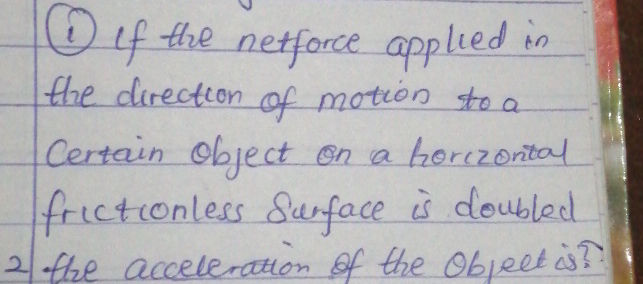 ① If the netforce applied in
the direction of motion to a
Certain Object on a horizontal
frictionless Surface is doubled
2 the acceleration of the Object is?